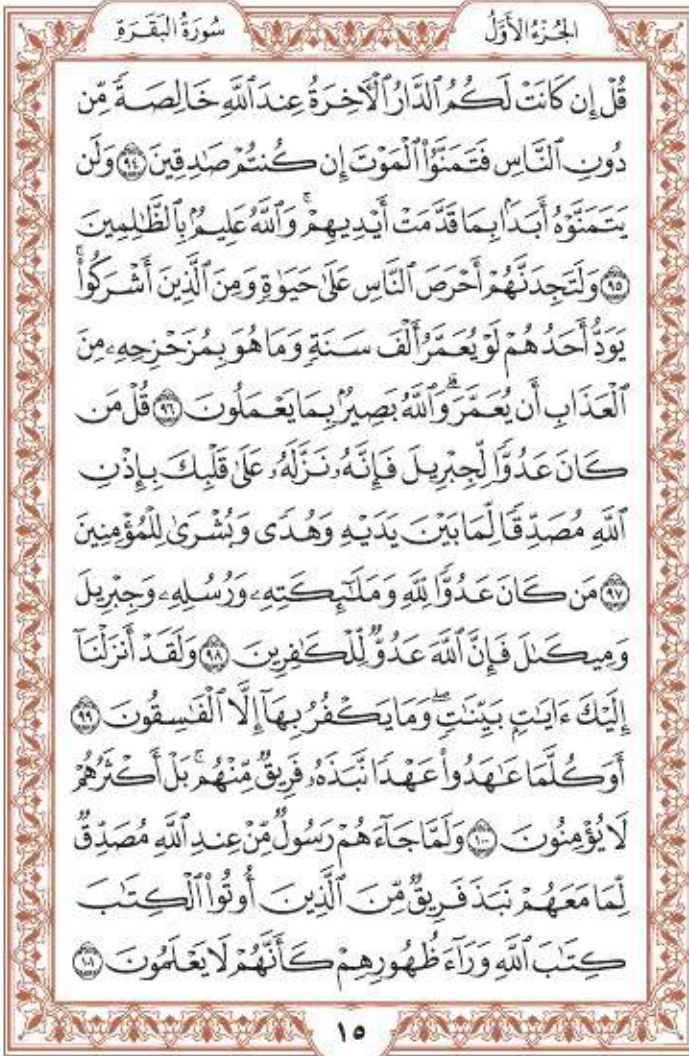 سُورَةُ البَقَرَةِ
الجُزْءُ الأَوَّلُ
قُلْ إِن كَانَتْ لَكُمُ ٱلدَّارُ ٱلْأَخِرَةُ عِندَ ٱللَّهِ خَالِصَةً مِّن
دُونِ ٱلنَّاسِ فَتَمَنَّوُا۟ ٱلْمَوْتَ إِن كُنتُمْ صَٰدِقِينَ ٩٤ وَلَن
يَتَمَنَّوْهُ أَبَدَۢا بِمَا قَدَّمَتْ أَيْدِيهِمْ ۚ وَٱللَّهُ عَلِيمُۢ بِٱلظَّٰلِمِينَ
٩٥ وَلَتَجِدَنَّهُمْ أَحْرَصَ ٱلنَّاسِ عَلَىٰ حَيَوٰةٍ وَمِنَ ٱلَّذِينَ أَشْرَكُوا۟ ۚ
يَوَدُّ أَحَدُهُمْ لَوْ يُعَمَّرُ أَلْفَ سَنَةٍ وَمَا هُوَ بِمُزَحْزِحِهِۦ مِنَ
ٱلْعَذَابِ أَن يُعَمَّرَ ۗ وَٱللَّهُ بَصِيرُۢ بِمَا يَعْمَلُونَ ٩٦ قُلْ مَن
كَانَ عَدُوًّا لِّجِبْرِيلَ فَإِنَّهُۥ نَزَّلَهُۥ عَلَىٰ قَلْبِكَ بِإِذْنِ
ٱللَّهِ مُصَدِّقًا لِّمَا بَيْنَ يَدَيْهِ وَهُدًى وَبُشْرَىٰ لِلْمُؤْمِنِينَ
٩٧ مَن كَانَ عَدُوًّا لِّلَّهِ وَمَلَٰٓئِكَتِهِۦ وَرُسُلِهِۦ وَجِبْرِيلَ
وَمِيكَىٰلَ فَإِنَّ ٱللَّهَ عَدُوٌّ لِّلْكَٰفِرِينَ ٩٨ وَلَقَدْ أَنزَلْنَآ
إِلَيْكَ ءَايَٰتٍۭ بَيِّنَٰتٍ ۖ وَمَا يَكْفُرُ بِهَآ إِلَّا ٱلْفَٰسِقُونَ ٩٩
أَوَكُلَّمَا عَٰهَدُوا۟ عَهْدًا نَّبَذَهُۥ فَرِيقٌ مِّنْهُم ۚ بَلْ أَكْثَرُهُمْ
لَا يُؤْمِنُونَ ١٠٠ وَلَمَّا جَآءَهُمْ رَسُولٌ مِّنْ عِندِ ٱللَّهِ مُصَدِّقٌ
لِّمَا مَعَهُمْ نَبَذَ فَرِيقٌ مِّنَ ٱلَّذِينَ أُوتُوا۟ ٱلْكِتَٰبَ
كِتَٰبَ ٱللَّهِ وَرَآءَ ظُهُورِهِمْ كَأَنَّهُمْ لَا يَعْلَمُونَ ١٠١
١٥